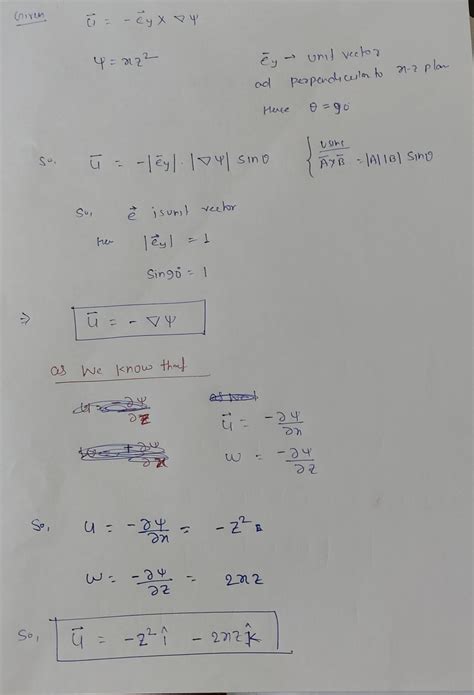 Given
ū = - e⃗y × ∇ψ
ψ = xz²
ēy → unit vector
ad perpendicular to x-z plan
Here θ = 90
So, ū = -|e⃗y|·|∇ψ| sinθ
{ using A×B = |A||B| sinθ
So, e⃗ is unit vector
Her |e⃗y| = 1
Sin90° = 1
⇒ ū = - ∇ψ
as We know that
ū = -∂ψ/∂x
w = -∂ψ/∂z
So, u = -∂ψ/∂x = -z²
w = -∂ψ/∂z = 2xz
So, ū = -z² î - 2xz k̂